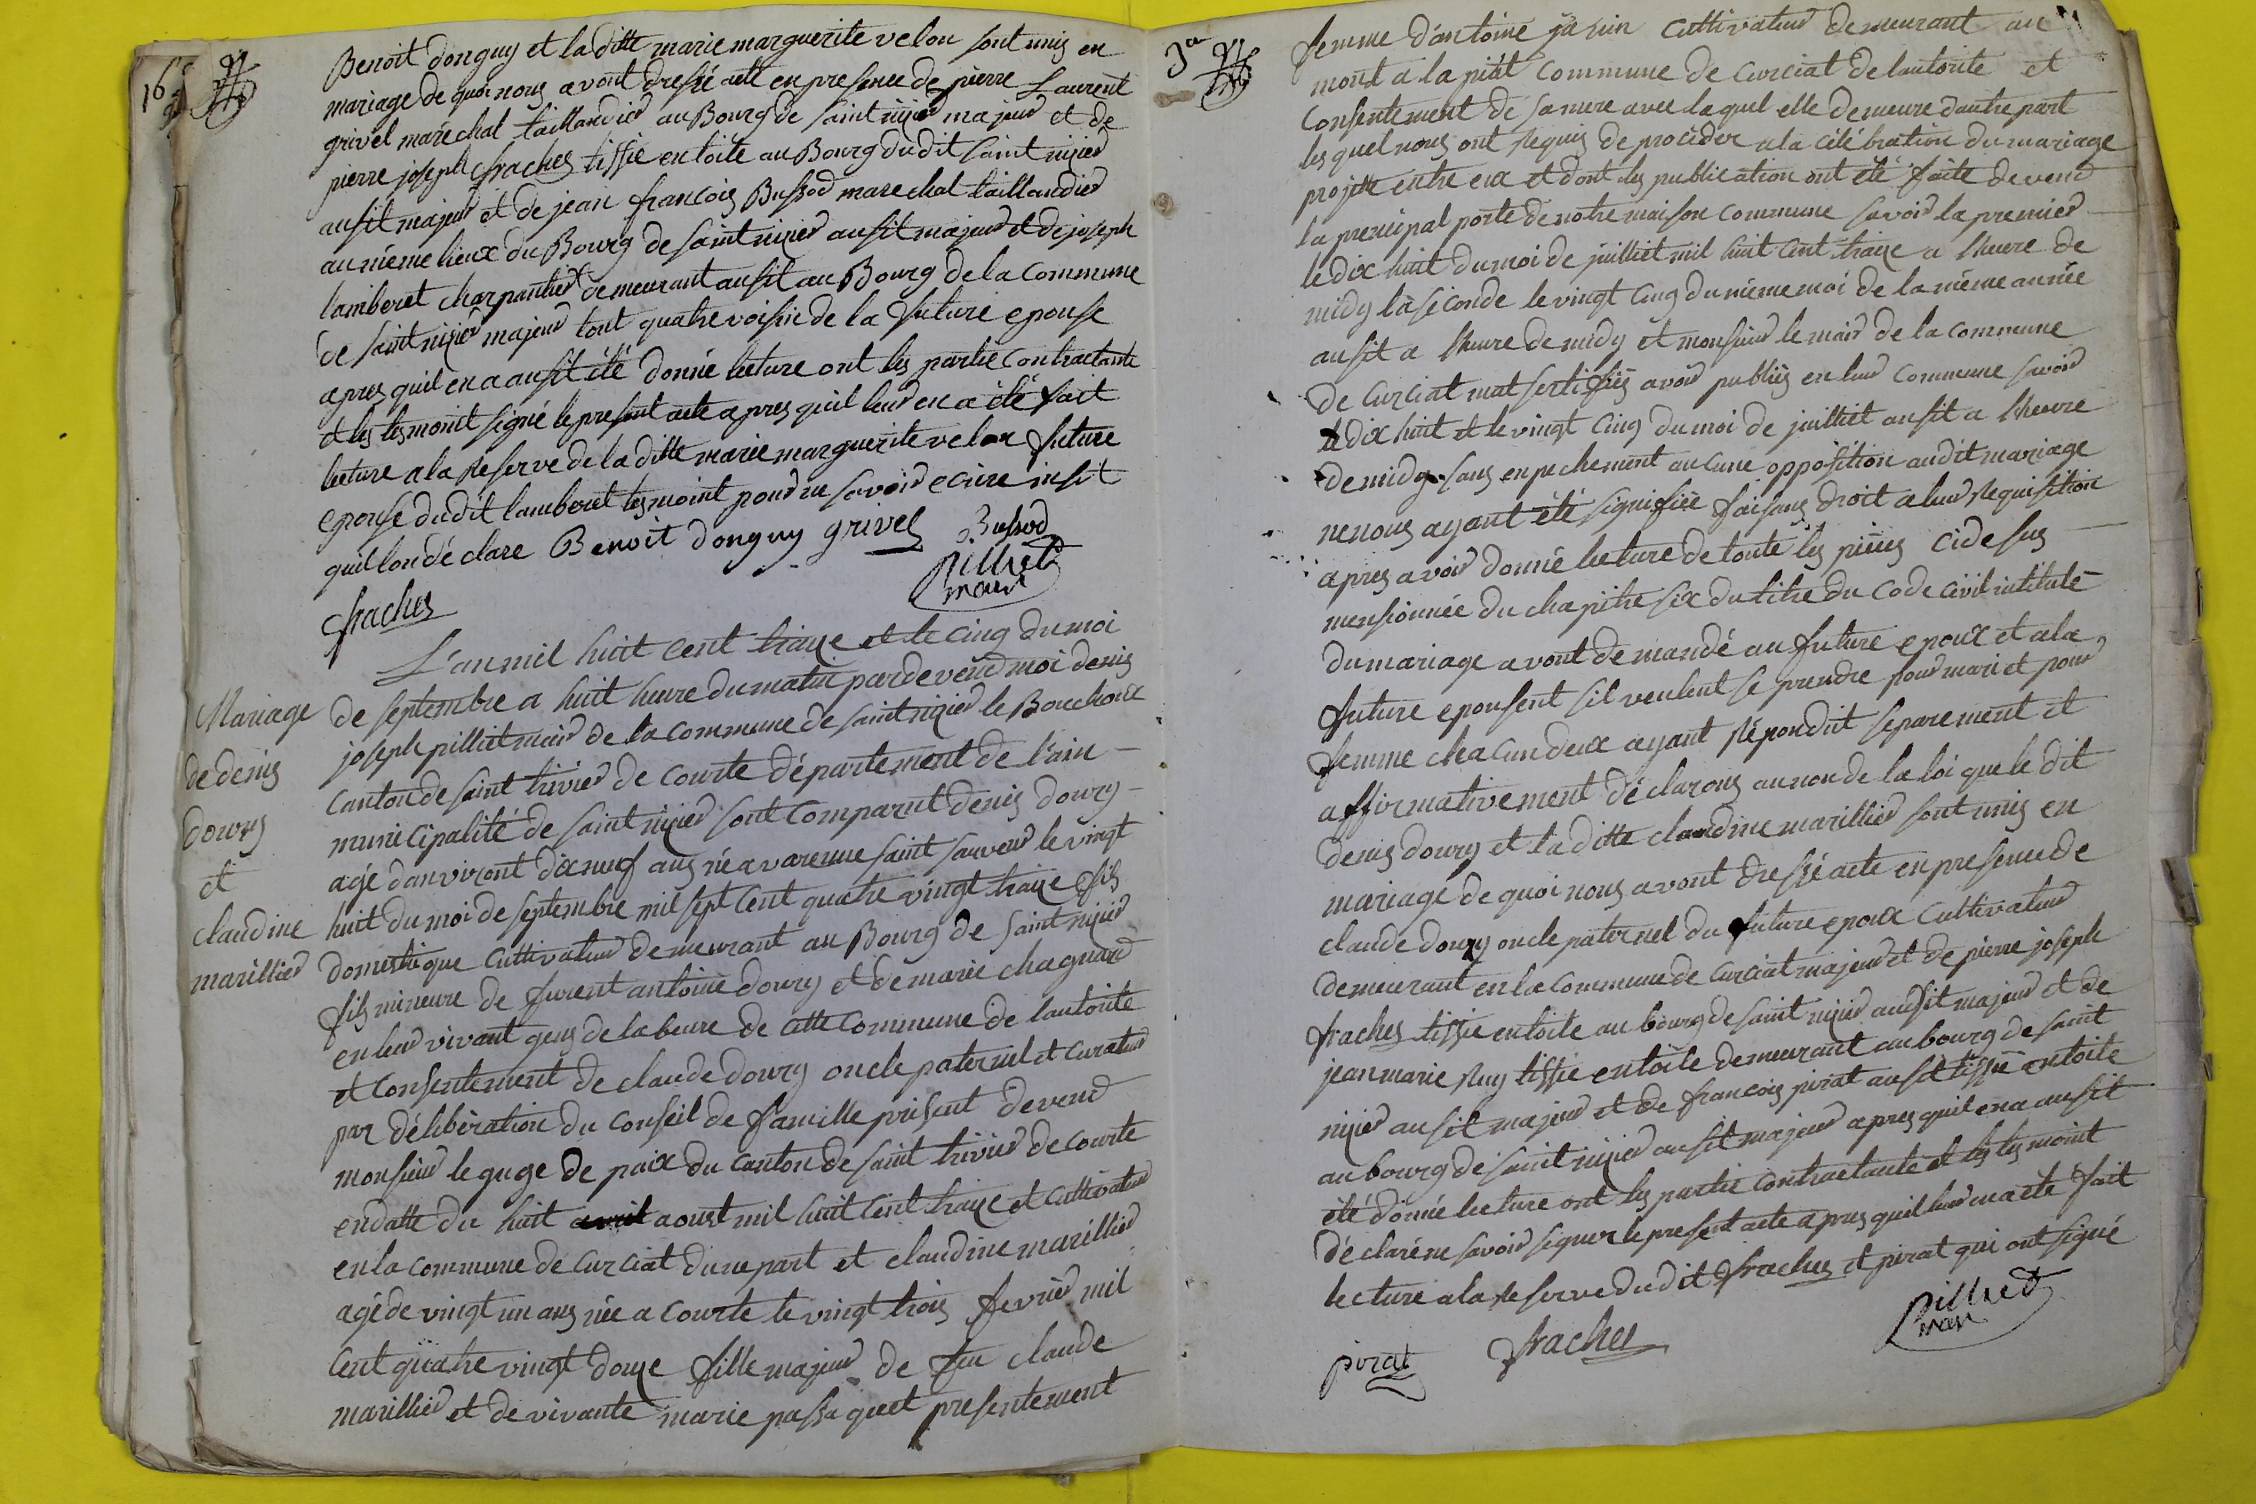 16e
Benoit donguy et la ditte marie marguerite velon sont unis en
mariage de quoi nous avont dressé acte en presence de pierre Laurent
grivel maréchal taillandier au Bourg de saint nizier majeur et de
pierre joseph fraches tissié en toile au Bourg dudit saint nizier
ausit majeur et de jean françois Bussod marechal taillandier
au même lieux du Bourg de saint nizier ausit majeur et de joseph
lamberet charpantier demeurant ausit au Bourg de la commune
de saint nizier majeur tout quatre voisin de la future epouse
apres quil en a ausit été donné lecture ont les partie contractante
et les tesmoint signé le present acte apres quil leur en a été fait
lecture a la reserve de la ditte marie marguerite velon future
epouse dudit lamberet tesmoint pour ne savoir ecrire insit
quil lon déclare Benoit donguy grivel J. Bussod
fraches
pilliet
mair
L'an mil huit cent traize et le cinq du moi
Mariage
de denis
doury
et
claudine
marillier
de septembre a huit heure du matin pardevend moi denis
joseph pilliet mair de la commune de saint nizier le Bouchoux
canton de saint trivier de courte département de l'ain
municipalité de saint nizier sont comparut denis doury
agé danviront dixneuf ans né a varenne saint sauveur le vingt
huit du moi de septembre mil sept cent quatre vingt traize fils
domestique cultivateur demeurant au Bourg de saint nizier
fils mineure de furent antoine doury et de marie chagnard
en leur vivant gens de labeure de cette commune de lautorite
et consentement de claude doury oncle paternel et curateur
par délibération du conseil de famille prisent devend
monsieur le guge de paix du canton de saint trivier de courte
en datte du huit avril aoust mil huit cent traize et cultivateur
en la commune de curciat dune part et claudine marillier
agé de vingt un ans née a courte le vingt trois fevrier mil
cent quatre vingt douze fille majeur de feu claude
marillier et de vivante marie passaquet presentement
femme d'antoine janin cultivateur demeurant au
mont a la piat commune de curciat de lautorite et
consentement de sa mere avec laquel elle demeure dautre part
les quel nous ont requis de procéder a la célébration du mariage
projette entre eux et dont les publication ont été faite devend
la principal porte de notre maison commune savoir la premier
le dix huit du moi de juilliet mil huit cent traize a l'heure de
midy la seconde le vingt cinq du même moi de la même année
ausit a l'heure de midy et monsieur le mair de la commune
de curciat mat sertifiés avoir publiés en leur commune savoir
le dix huit et le vingt cinq du moi de juilliet ausit a l'heure
de midy sans enpechement aucune opposition audit mariage
ne nous ayant été signifiée faisans droit a leur requisition
apres avoir donné lecture de toute les pièces cidesus
mensionnée du chapitre six du titre du code civil intitulé
du mariage avont demandé au future epoux et a la
future epousent sil veulent se prendre pour mari et pour
femme chacun deux ayant répondit separement et
affirmativement déclarons au non de la loi que le dit
denis doury et la ditte claudine marillier sont unis en
mariage de quoi nous avont dressé acte en presence de
claude doury oncle paternel du future epoux cultivateur
demeurant en la commune de curciat majeur et de pierre joseph
fraches tissie en toile au bourg de saint nizier ausit majeur et de
jean marie ruy tissie en toile demeurant au bourg de saint
nizier ausit majeur et de françois pirat ausit tissié en toile
au bourg de saint nizier ausit majeur apres quil en a ausit
été donné lecture ont les partie contractante et les tesmoint
déclaré ne savoir signer le present acte apres quil leur en a été fait
lecture a la reserve dudit fraches et pirat qui ont signé
pirat fraches
pilliet
mair